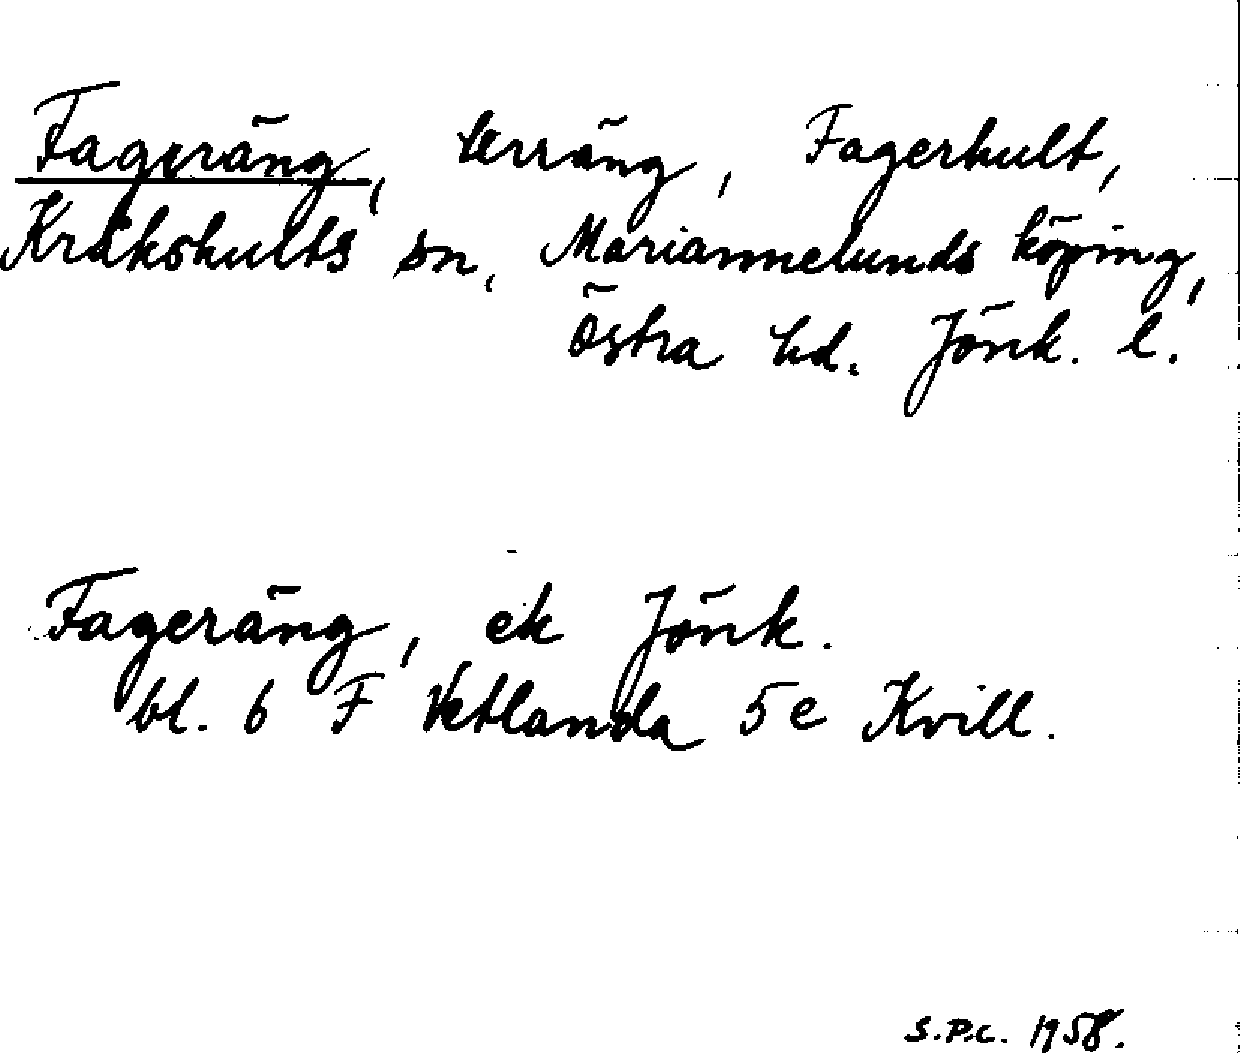 Fageräng, terräng, Fagerhult,
Kråkshults sn, Mariannelunds köping,
Östra hd. Jönk. l.
Fageräng, ek Jönk.
bl. 6 F Vetlanda 5e Kvill.
S.P.C. 1958.